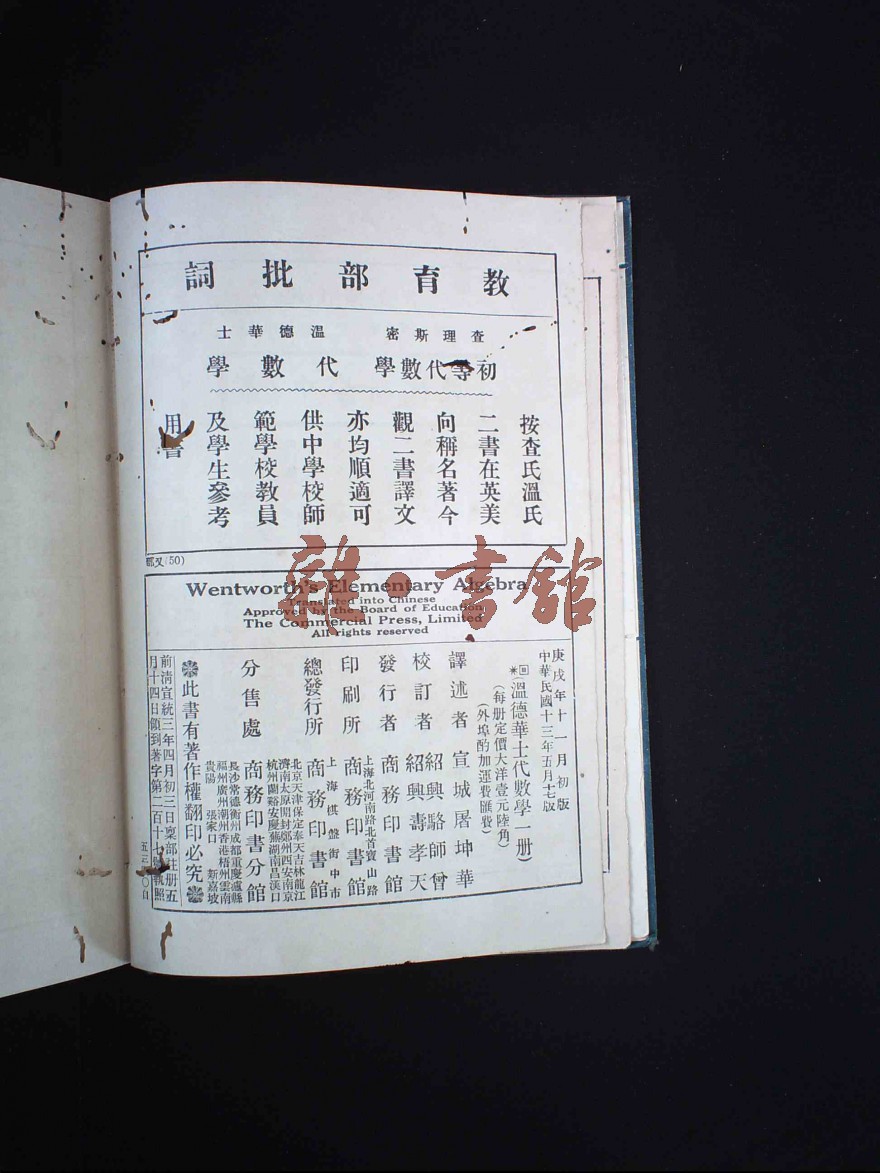 教育部批詞
查理斯密
初等代數學
溫德華士
代數學
按查氏溫氏
二書在英美
向稱名著今
觀二書譯文
亦均順適可
供中學校師
範學校教員
及學生參考
用書
Wentworth's Elementary Algebra
Translated into Chinese
Approved by the Board of Education
The Commercial Press, Limited
All rights reserved
庚戌年十一月初版
中華民國十三年五月十七版
(溫德華士代數學一册)
(每册定價大洋壹元陸角)
(外埠酌加運費匯費)
譯述者 宣城屠坤華
校訂者 紹興駱師曾
紹興壽孝天
發行者 商務印書館
印刷所 上海北河南路北首寶山路
商務印書館
總發行所 上海棋盤街中市
商務印書館
分售處
北京天津保定奉天吉林龍江
濟南太原開封鄭州西安南京
杭州蘭谿安慶蕪湖南昌漢口
商務印書分館
長沙常德衡州成都重慶瀘縣
福州廣州潮州香港梧州雲南
貴陽 張家口 新嘉坡
此書有著作權翻印必究
前清宣統三年四月初三日稟部註册五
月十四日領到著字第二百十七號執照
雜·書館